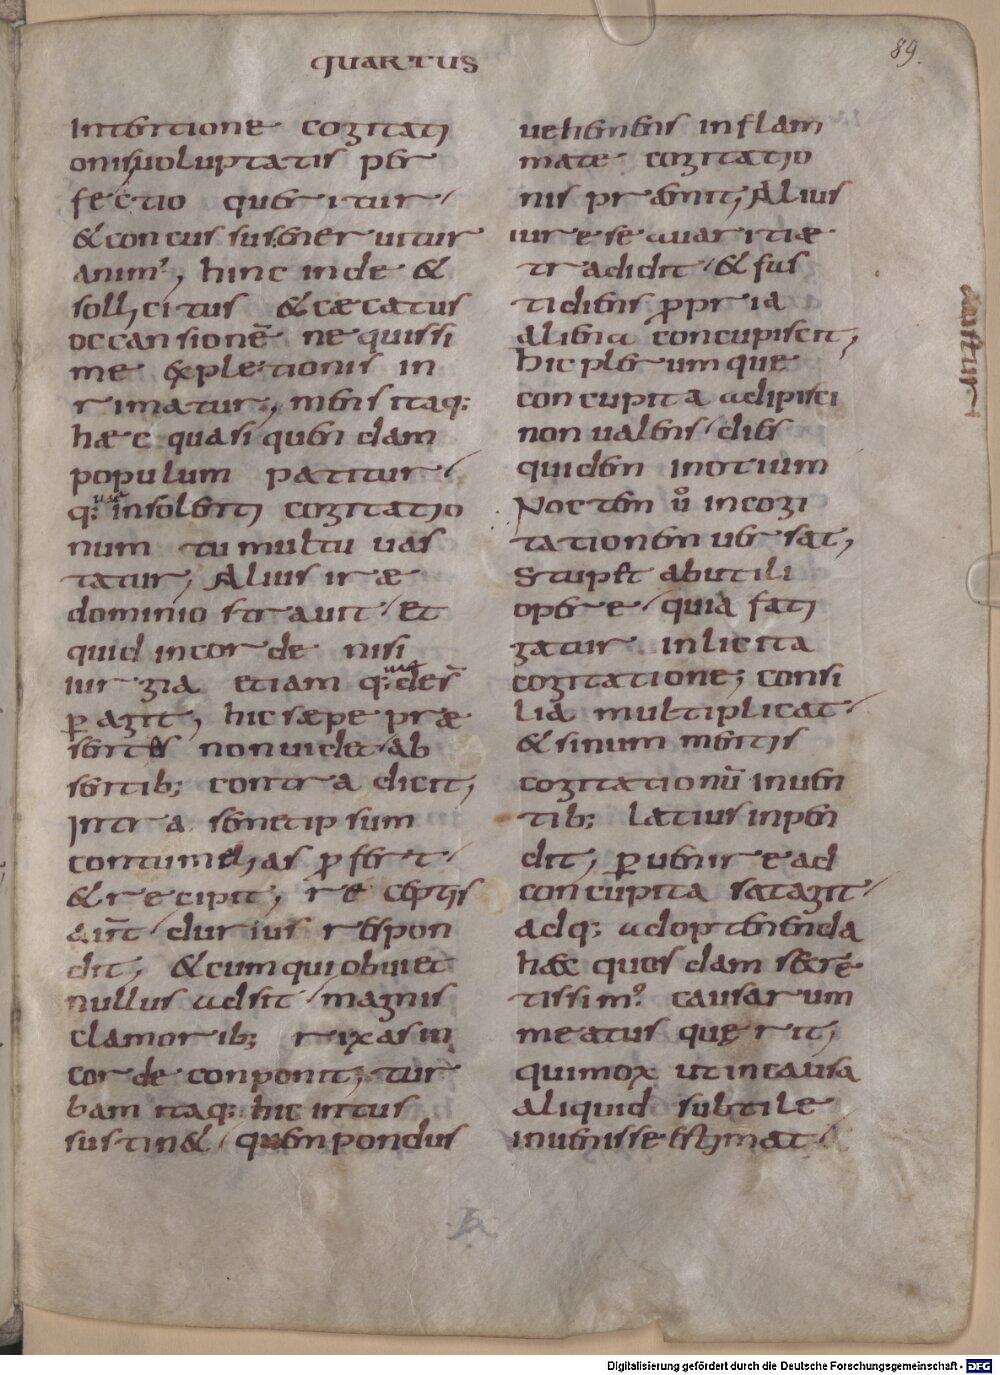 QUARTUS
89.
Intentione cogitati
onisuoluptatis per
fectio queritur
&concussuseneruitur
anim', hinc inde &
sollicitus &cæcatus
occansionē nequissi
me expletionis in
rimatur;, mens itaq:
hæc quasi quendam
populum patitur
q: uae insolenti cogitatio
num tumultu uas
tatur, Alius iræ
dominio strauit et
quid incorde nisi
iurgia etiam q: uae dēs
ꝑagit, hic sæpe præ
sentes nonuidet ab
sentib; contradicit,
Intra semetipsum
contumelias ꝓfert
&recipit, receptis
aūt durius respon
dit, &cumquiobuiet
nullus adsit magnis
clamorib; rixasin
corde conponit, tur
bam itaq: hic intus
sustin& quempondus
uehemens inflam
mate cogitatio
nis præmit, Alius
iurese auaritiæ
tradidit &fas
tidiens ꝓpria
aliena concupiscit,
hic plerumque
concupita adipisci
nonualens dies
quidem inotium
Noctem ū incogi
tationem uersat,
Stupet abutili
opere quia fati
gatur inlicita
cogitatione; consi
lia multiplicat
&sinum mentis
cogitationū inuen
tib; latius inpen
dit, ꝑuenire ad
concupita satagit
adq; adoptenenda
hæc quosdam secre
tissimos causarum
meatus quęrit,
quimox utincausa
aliquid subtile
inuenisseestimat
Digitalisierung gefördert durch die Deutsche Forschungsgemeinschaft - DFG